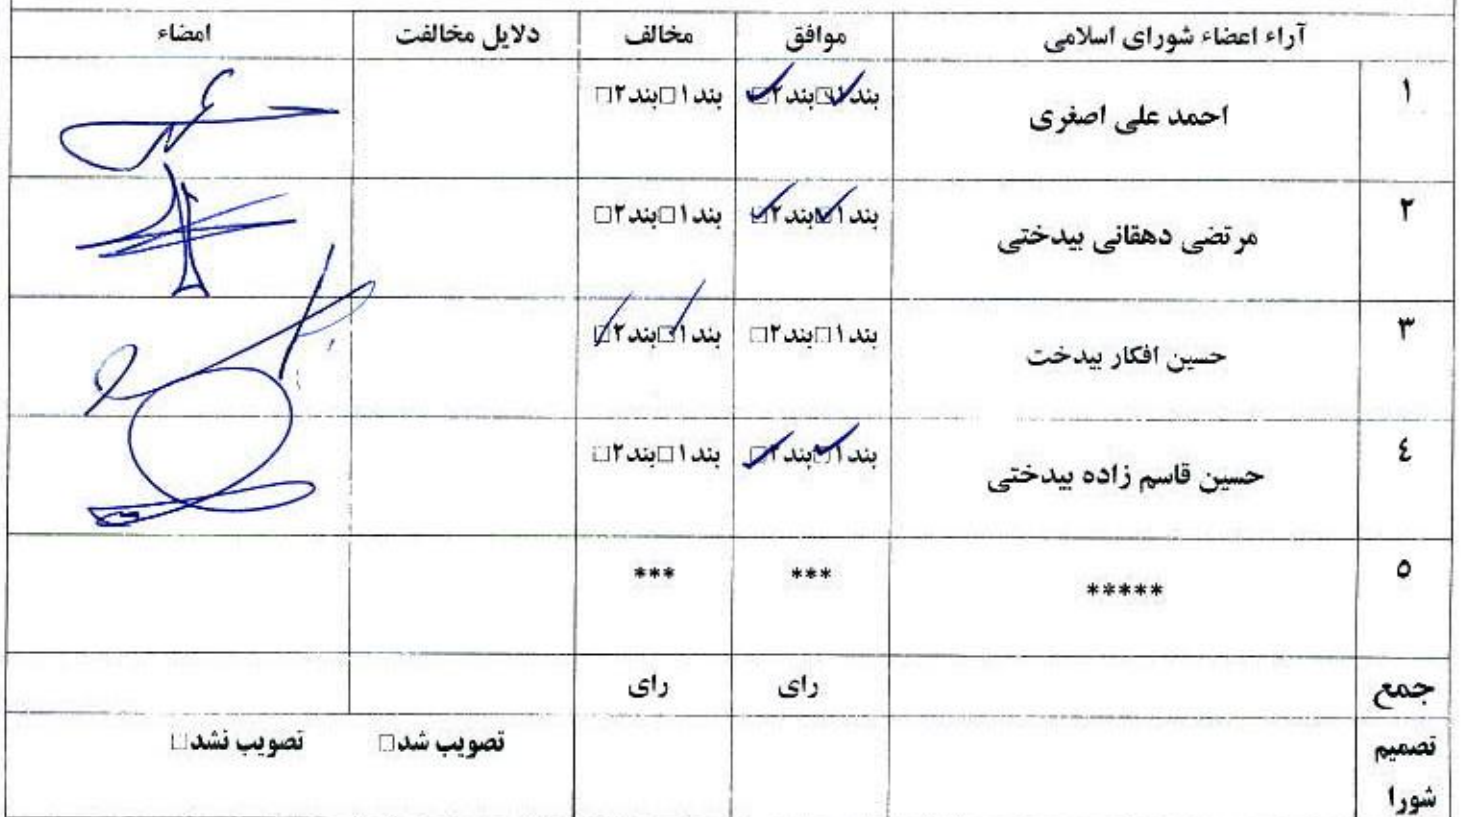 آراء اعضاء شورای اسلامی موافق مخالف دلایل مخالفت امضاء
۱ احمد علی اصغری بند ۱☑بند۲☑ بند ۱□بند۲□
۲ مرتضی دهقانی بیدختی بند ۱☑بند۲☑ بند ۱□بند۲□
۳ حسین افکار بیدخت بند ۱□بند۲□ بند ۱☑بند۲☑
٤ حسین قاسم زاده بیدختی بند ۱☑بند۲☑ بند ۱□بند۲□
٥ ***** *** ***
جمع رای رای
تصمیم تصویب شد□ تصویب نشد□
شورا